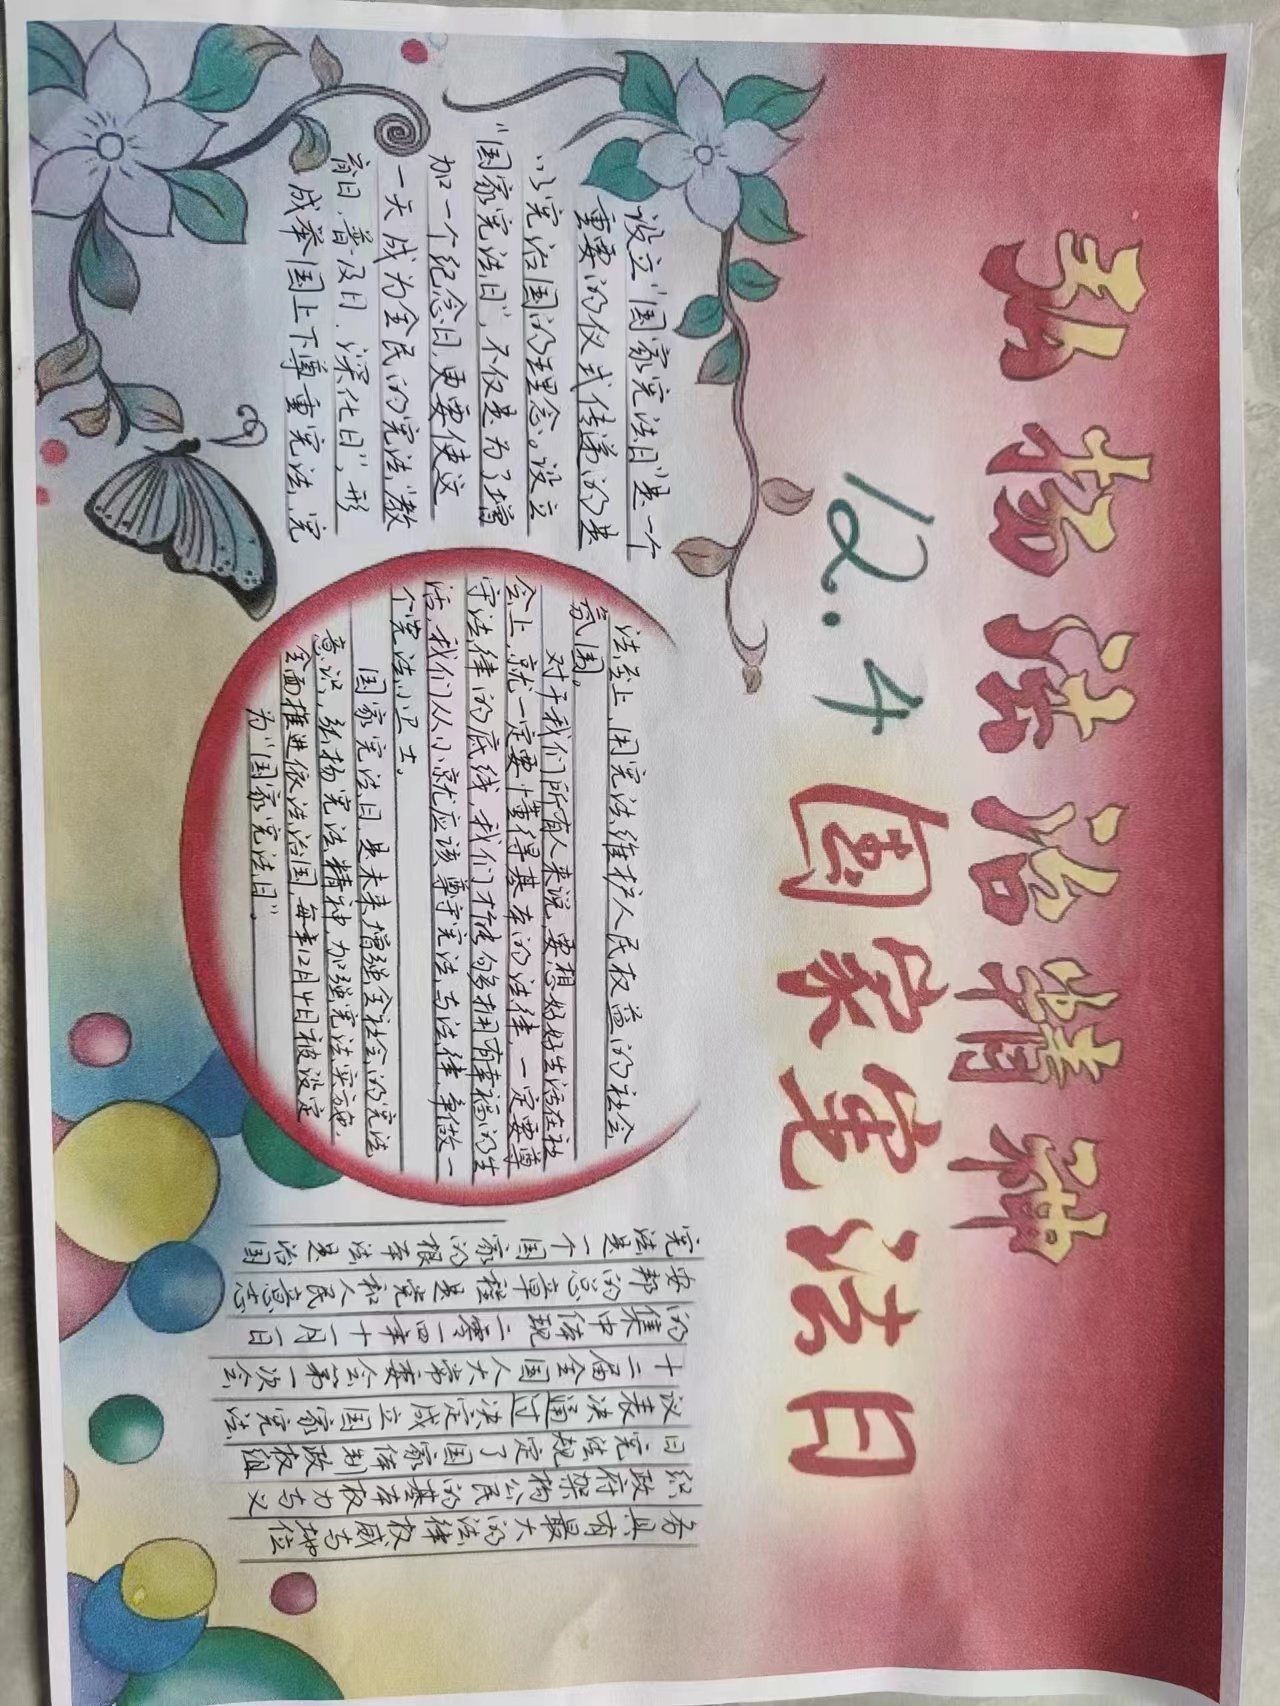 弘扬法治精神
12.4 国家宪法日
设立"国家宪法日"是一个
重要的仪式传递的是
以宪治国的理念。设立
"国家宪法日",不仅是为了增
加一个纪念日,更要使这
一天成为全民的宪法"教
育日、普及日、深化日",形
成举国上下尊重宪法、宪
法至上、用宪法维护人民权益的社会
氛围。
对于我们所有人来说,要想好好生活在社
会上,就一定要懂得基本的法律,一定要尊
守法律的底线,我们才能够拥有幸福的生
活,我们从小就应该尊守宪法与法律,争做一
个宪法小卫士。
国家宪法日,是未来增强全社会的宪法
意识,弘扬宪法精神,加强宪法实施,
全面推进依法治国,每年12月4日被设定
为"国家宪法日"。
宪法是一个国家的根本法是治国
安邦的总章程是党和人民意志
的集中体现二零一四年十一月一日
十二届全国人大常委第一次会
议表决通过决定成立国家宪法
日宪法规定了国家体制政权组
织政府架构公民的基本权力与义
务具有最大的法律权威与地位